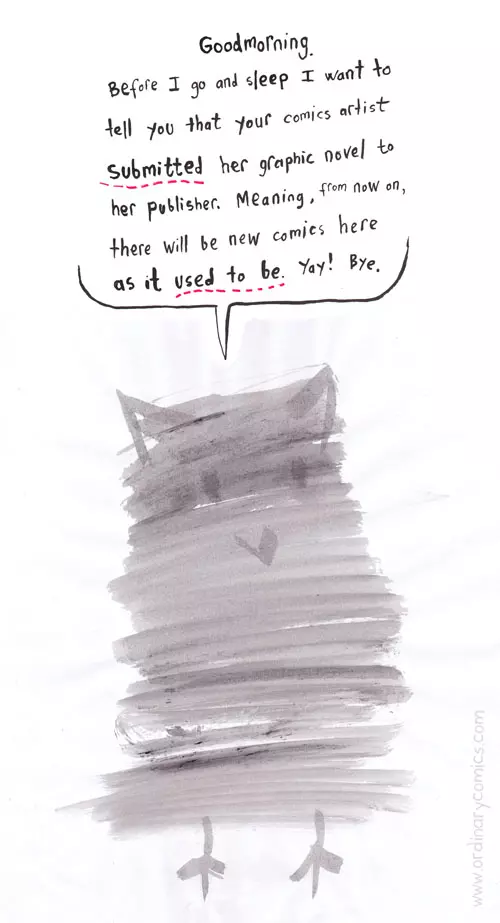 Goodmorning.
Before I go and sleep I want to
tell you that your comics artist
submitted her graphic novel to
her publisher. Meaning, from now on,
there will be new comics here
as it used to be. Yay! Bye.
www.ordinarycomics.com